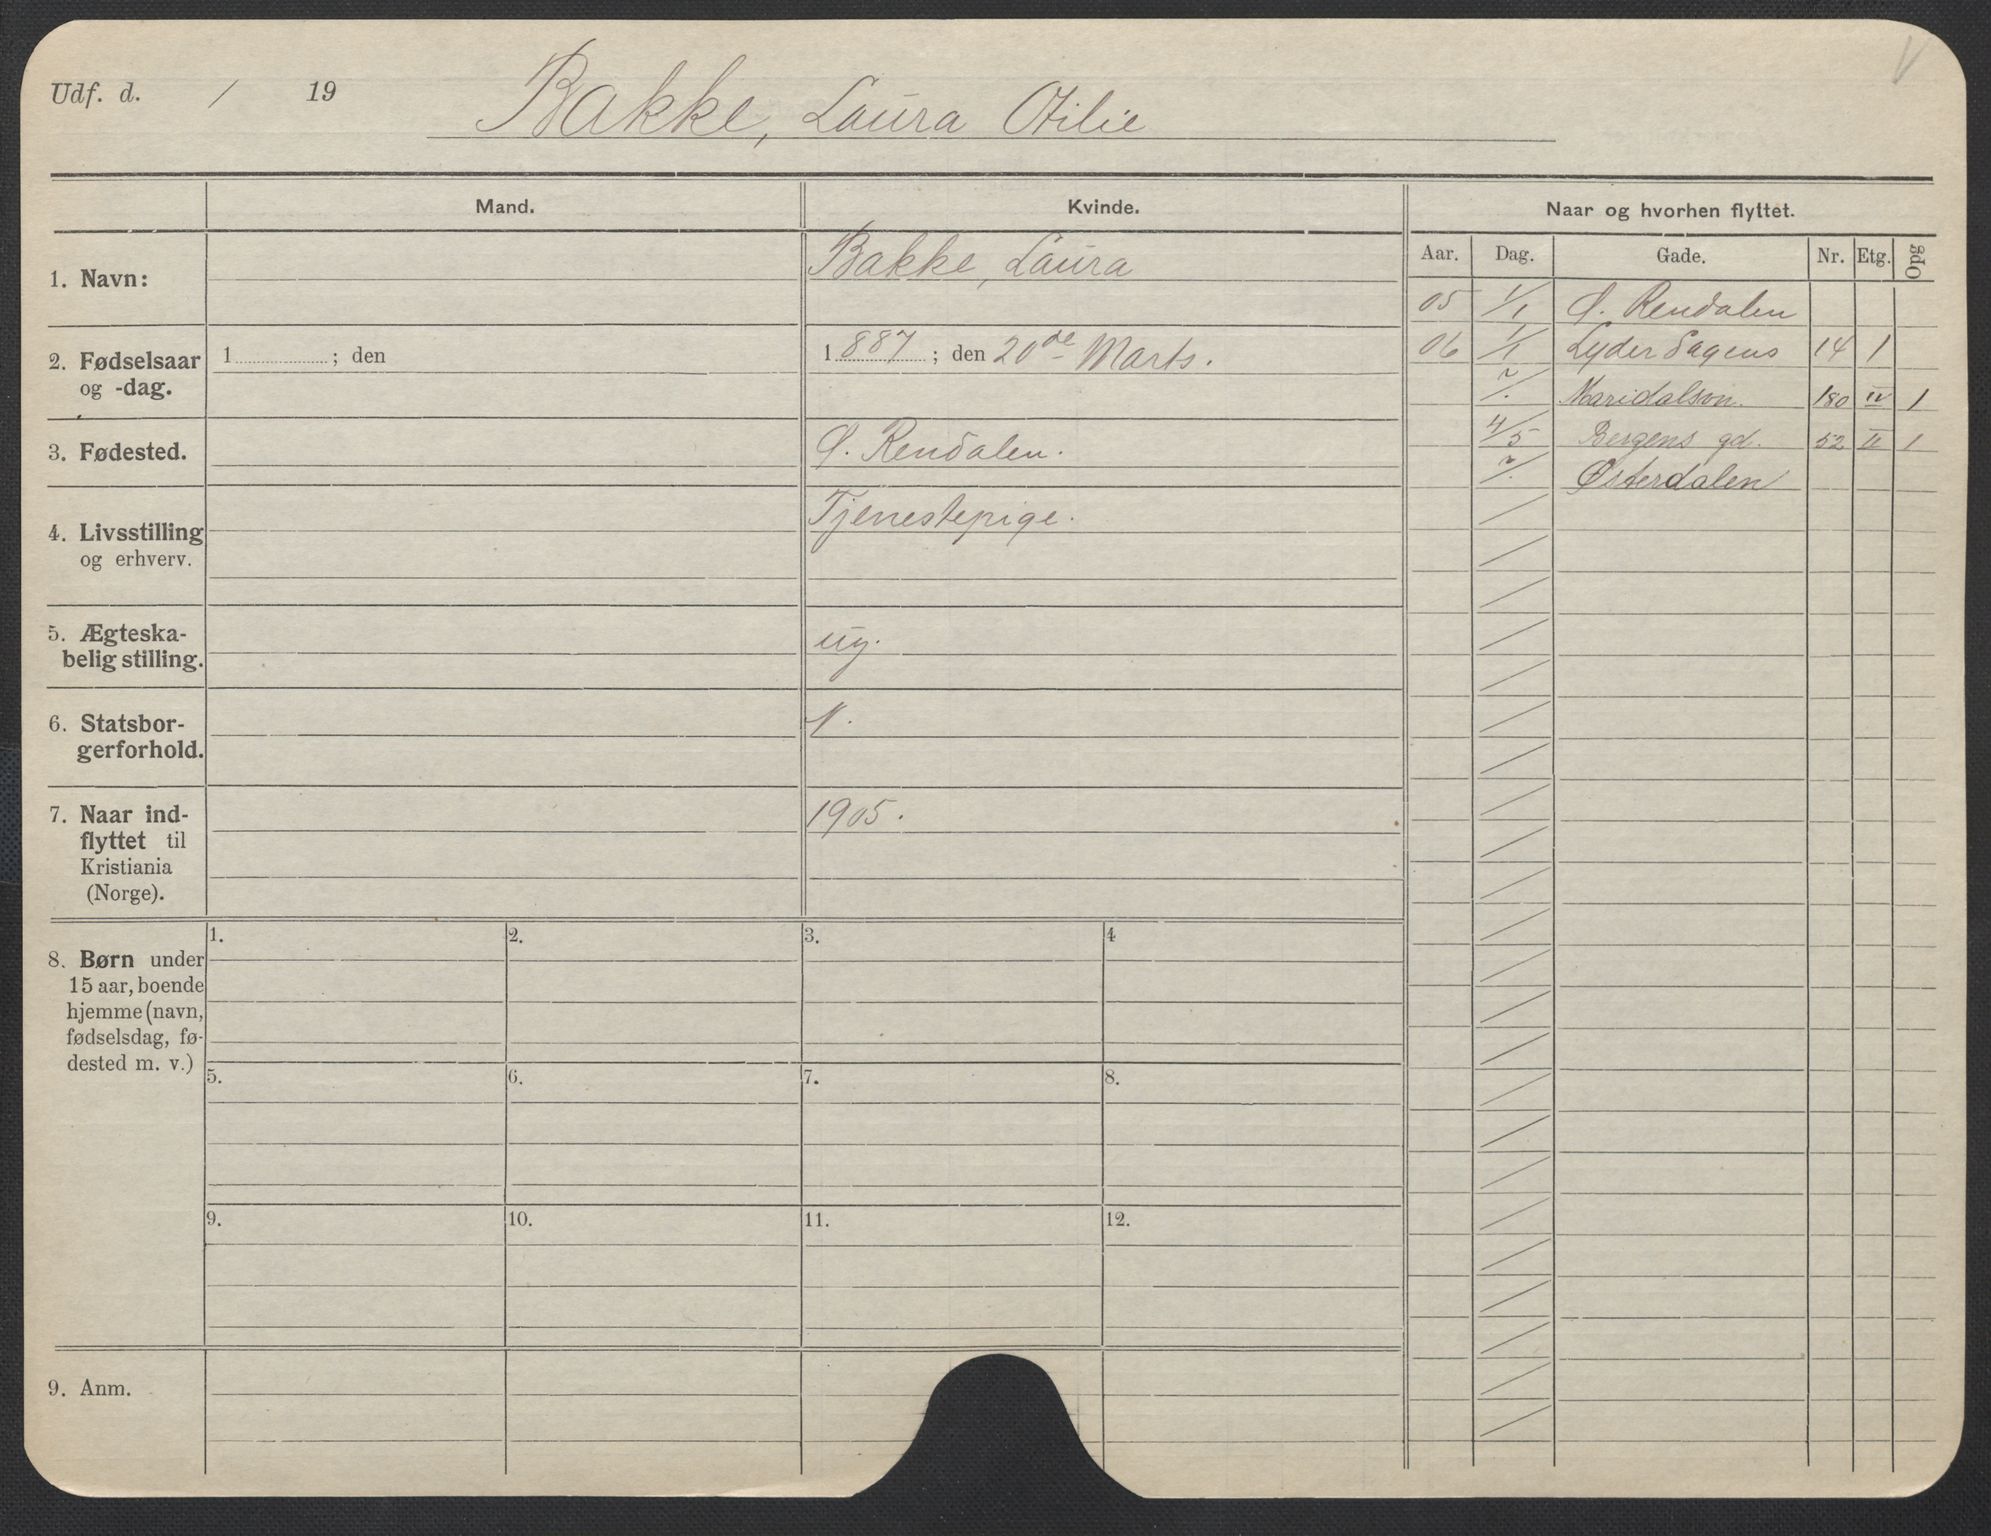 Udf. d. / 19
Bakke, Laura Otilie
Mand. Kvinde. Naar og hvorhen flyttet.
Aar. Dag. Gade. Nr. Etg. Opg
1. Navn: Bakke, Laura
2. Fødselsaar 1 ; den 1887 ; den 20de Marts.
og -dag.
3. Fødested. Ø. Rendalen.
4. Livsstilling Tjenestepige.
og erhverv.
5. Ægteska- ug.
belig stilling.
6. Statsbor- N.
gerforhold.
7. Naar ind- 1905.
flyttet til
Kristiania
(Norge).
05 1/1 Ø. Rendalen
06 1/1 Lyder Sagens 14 1
?/. Maridalsvn. 180 IV 1
4/5 Bergens gd. 52 II 1
?/. Østerdalen
8. Børn under
15 aar, boende
hjemme (navn,
fødselsdag, fø-
dested m. v.)
1. 2. 3. 4
5. 6. 7. 8.
9. 10. 11. 12.
9. Anm.